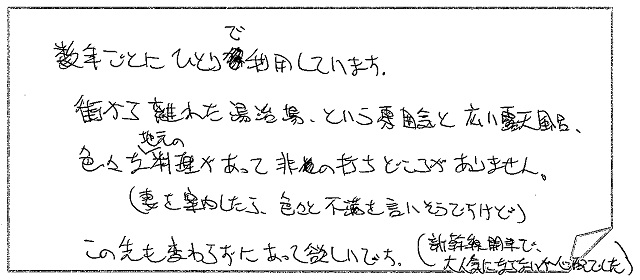 数年ごとにひとりで利用しています。
街から離れた湯治場、という雰囲気と広い露天風呂、
色々な地元の料理があって非の打ちどころがありません。
(妻を案内したら、色々と不満を言いそうですけど)
この先も変わらずにあって欲しいです。(新幹線開業で、
大人気にならないか心配でした)